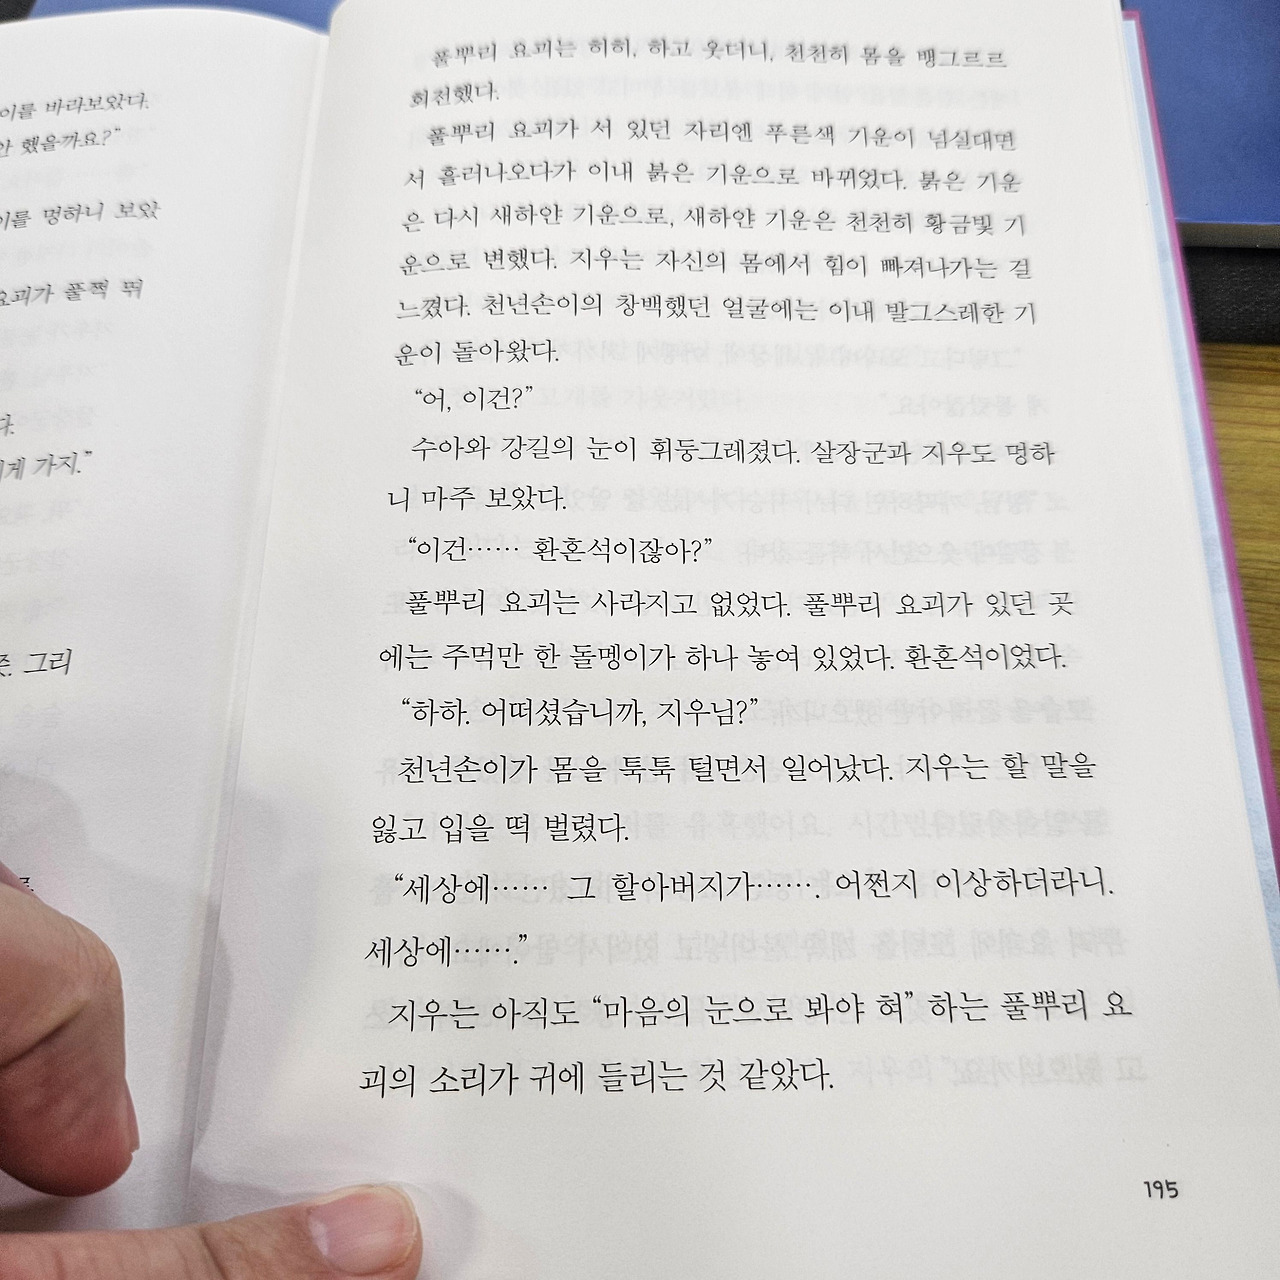 이를 바라보았다.
안 했을까요?”
이를 멍하니 보았
요괴가 풀쩍 뛰
다.
게 가지.”
그리
풀뿌리 요괴는 히히, 하고 웃더니, 천천히 몸을 뱅그르르
회전했다.
풀뿌리 요괴가 서 있던 자리엔 푸른색 기운이 넘실대면
서 흘러나오다가 이내 붉은 기운으로 바뀌었다. 붉은 기운
은 다시 새하얀 기운으로, 새하얀 기운은 천천히 황금빛 기
운으로 변했다. 지우는 자신의 몸에서 힘이 빠져나가는 걸
느꼈다. 천년손이의 창백했던 얼굴에는 이내 발그스레한 기
운이 돌아왔다.
“어, 이건?”
수아와 강길의 눈이 휘둥그레졌다. 살장군과 지우도 멍하
니 마주 보았다.
“이건…… 환혼석이잖아?”
풀뿌리 요괴는 사라지고 없었다. 풀뿌리 요괴가 있던 곳
에는 주먹만 한 돌멩이가 하나 놓여 있었다. 환혼석이었다.
“하하. 어떠셨습니까, 지우님?”
천년손이가 몸을 툭툭 털면서 일어났다. 지우는 할 말을
잃고 입을 떡 벌렸다.
“세상에…… 그 할아버지가……. 어쩐지 이상하더라니.
세상에…….”
지우는 아직도 “마음의 눈으로 봐야 혀” 하는 풀뿌리 요
괴의 소리가 귀에 들리는 것 같았다.
195